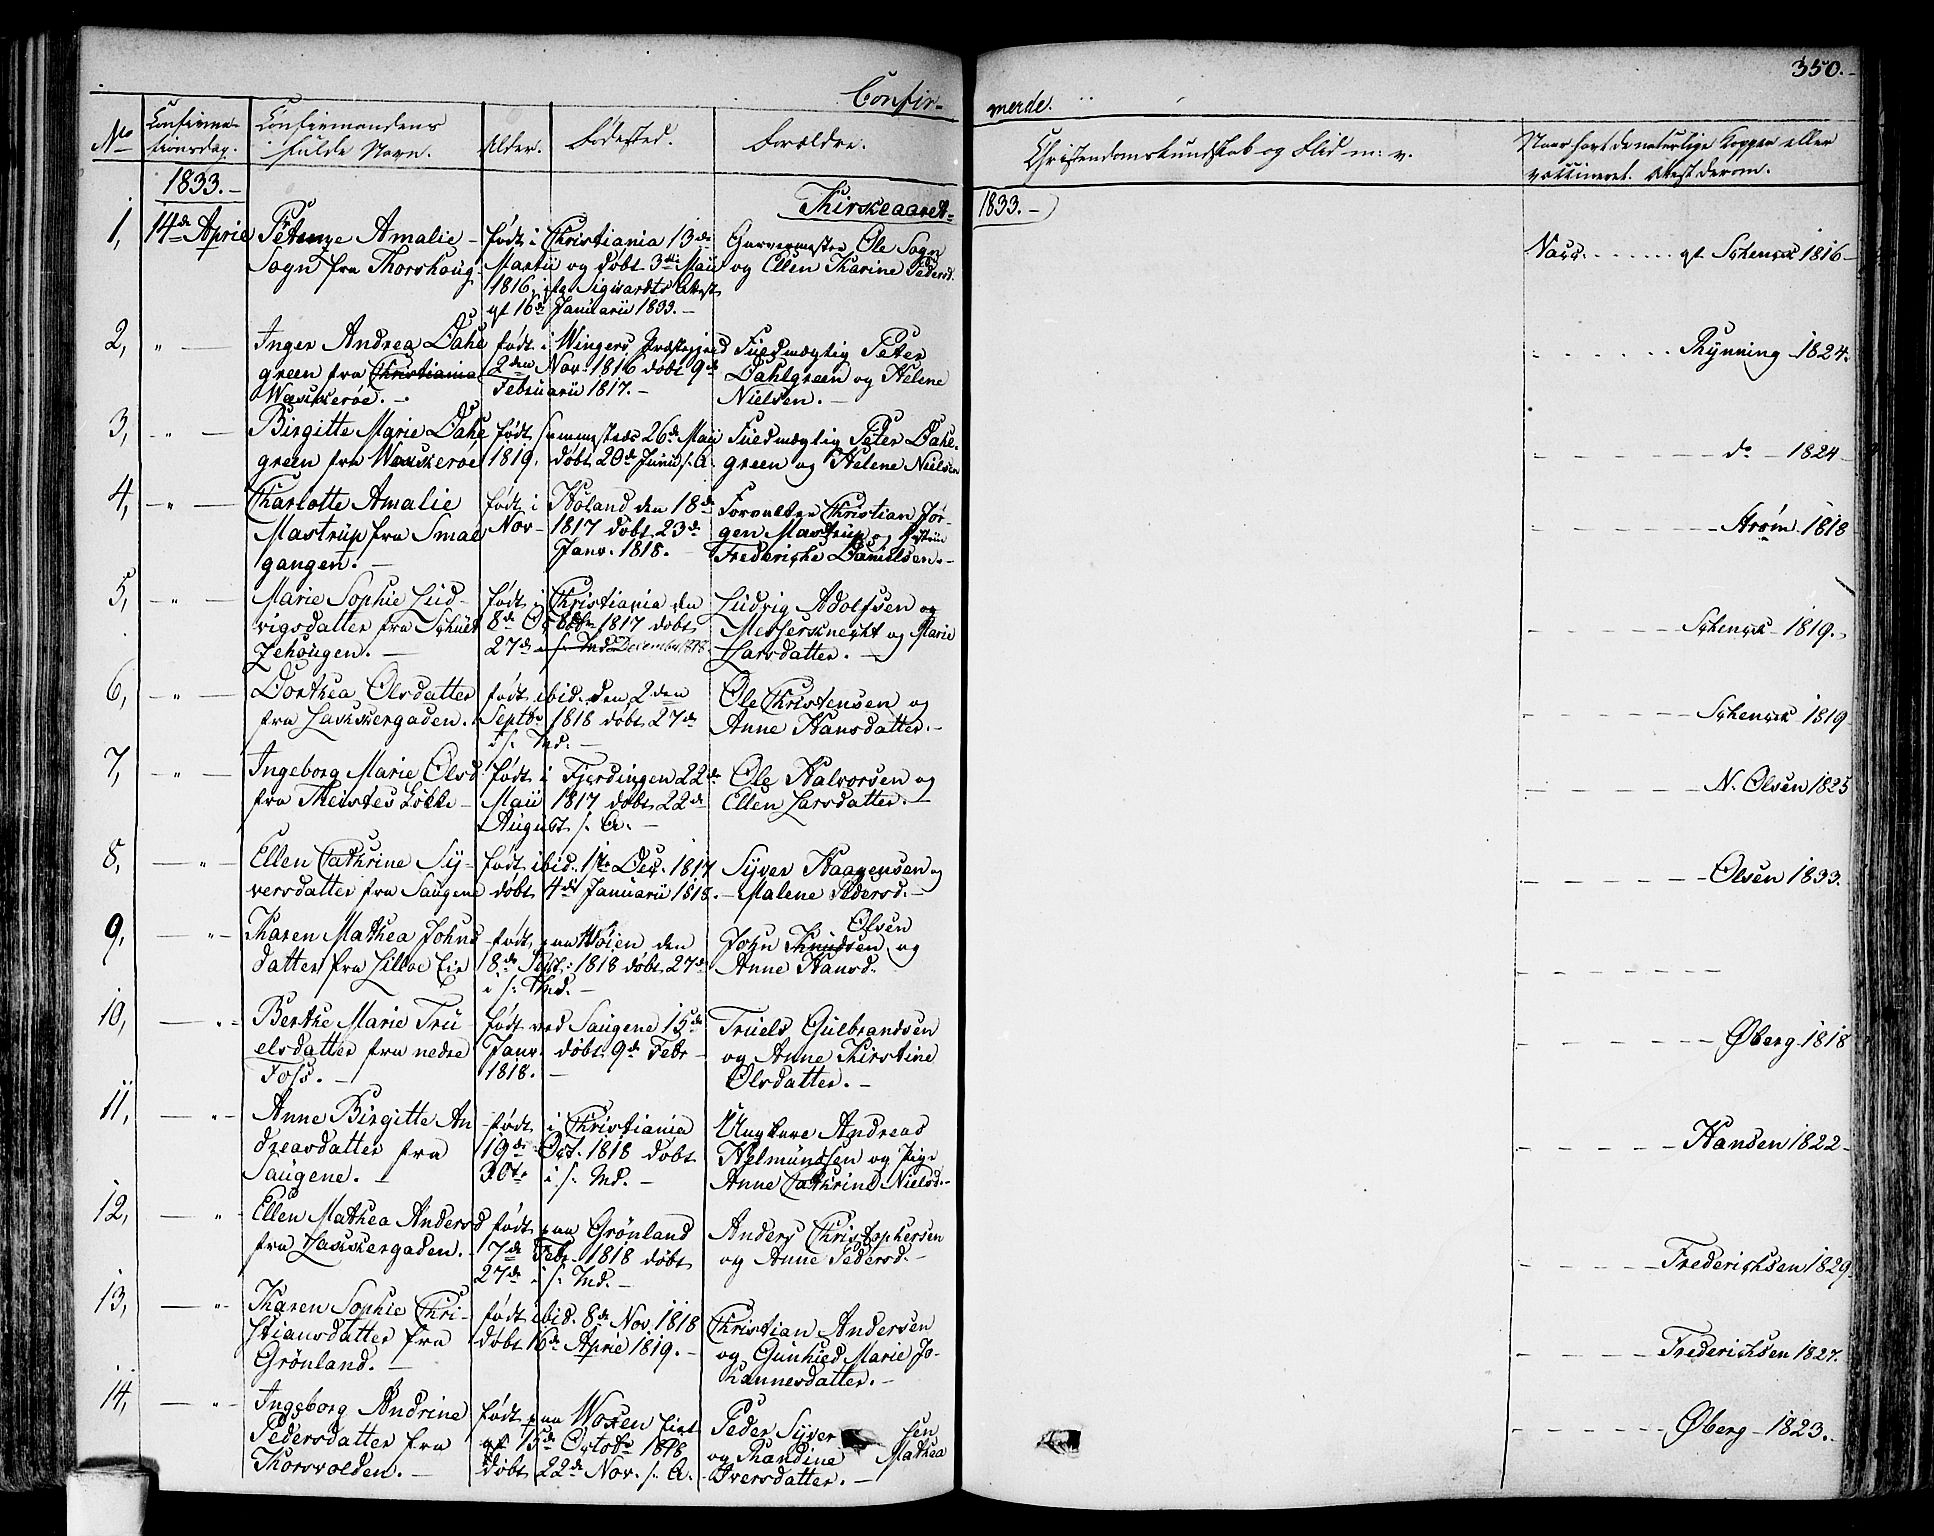 350.
Confir-
merde.
No
Confirma-
tionsdag.
Confirmandens
fulde Navn.
Alder.
Fødested.
Forældre.
Christendomskundskab og Flid m: v.
Naar havt de naturlige Kopper eller
vaccineret. Attest derom.
1833.-
Kirkeaaret-
1833.-
1,
14de April
Petenze Amalie
Sogn fra Thorshoug
født i Christiania 13de
Martii og døbt 3die Maii
1816, Sigwardts Attest
af 16de Januarii 1833.-
Garvermester Ole Sogn
og Ellen Karine Pedersd.
Vacc. af Schenck 1816-
2,
Inger Andrea Dahl
green fra Christiania
Wækkerøe.-
født i Wingers Præstegjeld
2den Nov. 1816 døbt 9de
Februarii 1817.-
Fuldmægtig Peter
Dahlgreen og Helene
Nielsen.-
Thynning 1824.
3,
Birgitte Marie Dahl
green fra Wækkerøe
født sammesteds 26de Maii
1819, døbt 20de Junii s. A.
Fuldmægtig Peter Dahl-
green og Helene Nielsen
do - 1824-
4,
Charlotte Amalie
Mastrup fra Smal
gangen.-
født i Høland den 18de
Nov- 1817 døbt 23de
Janv. 1818.-
Forvalter Christian Jør-
gen Mastrup og
Frederiche Danielsen.-
Strøm 1818
5,
Marie Sophie Lud-
vigsdatter fra Schult
zehougen.-
født i Christiania den
8de Octobr 1817 døbt
27de i s. Md. December 1817
Ludvig Adolfsen
Messerknecht og Marie
Larsdatter.-
Schenck 1819.
6,
Dorthea Olsdatter
fra Lakkergaden.
født ibid. den 2den
Septbr 1818 døbt 27de
i s. Md.-
Ole Christensen og
Anne Hansdatter.-
Schenck 1819
7,
Ingeborg Marie Olsd
fra Meistes Løkke-
født i Fjerdingen 22de
Maii 1817 døbt 22de
August s. A.-
Ole Halvorsen og
Ellen Larsdatter.-
N. Olsen 1825
8,
Ellen Cathrine Sy-
versdatter fra Saugene
født ibid. 1ste Dec. 1817
døbt 4de Januarii 1818.
Syver Haagensen og
Malene Pedersd.-
Olsen 1833.
9,
Karen Mathea Johns
datter fra Lilloe Eie
født paa Woien den
18de Sept. 1818 døbt 27de
i s. Md.-
Olsen
John Knudsen og
Anne Hansd.
10,
Berthe Marie Tru
elsdatter fra nedre
Foss.-
født ved Saugene 15de
Janv. døbt 9de Febr
1818.-
Truels Gulbrandsen
og Anne Kirstine
Olsdatter.-
Øberg 1818
11,
Anne Birgitte An
dreasdatter fra
Saugene.-
født i Christiania
19de Oct. 1818 døbt
30te i s. Md.-
Ungkarl Andreas
Helmundsen og Pige
Anne Cathrine Nielsd.-
Hansen 1822-
12,
Ellen Mathea Andersd
fra Lakkergaden.
født paa Grönland
7de Febr. 1818 døbt
27de i s. Md.-
Anders Christophersen
og Anne Pedersd.-
Frederichsen 1829
13,
Karen Sophie Chri-
stiansdatter fra
Grönland.-
født ibid. 8de Nov. 1818
døbt 16de April 1819.-
Christian Andersen
og Gunhild Marie Jo-
hannesdatter.-
Frederichsen 1827.
14,
Ingeborg Andrine
Pedersdatter fra
Thorsvolden.-
født paa Woxen Eiet
af 15de Octobr 1818
døbt 22de Nov. s. A.
Peder Syver sen
og Thandine Mathea
Iversdatter.-
Øberg 1823.